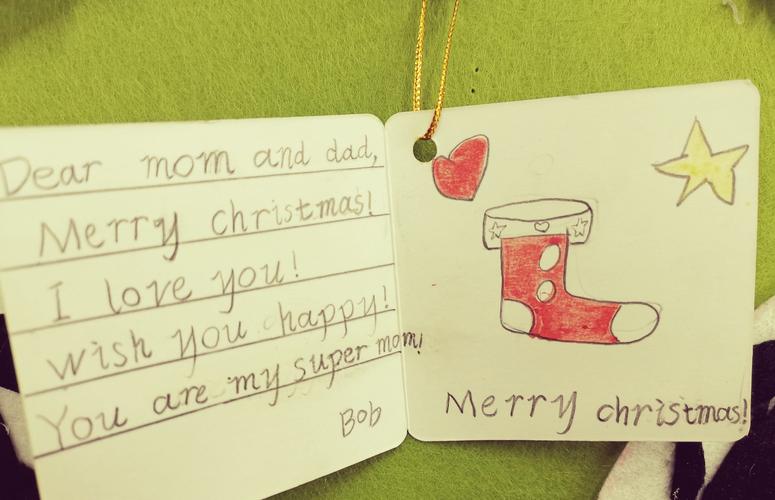 Dear mom and dad,
Merry christmas!
I love you!
wish you happy!
You are my super mom!
Bob
Merry christmas!